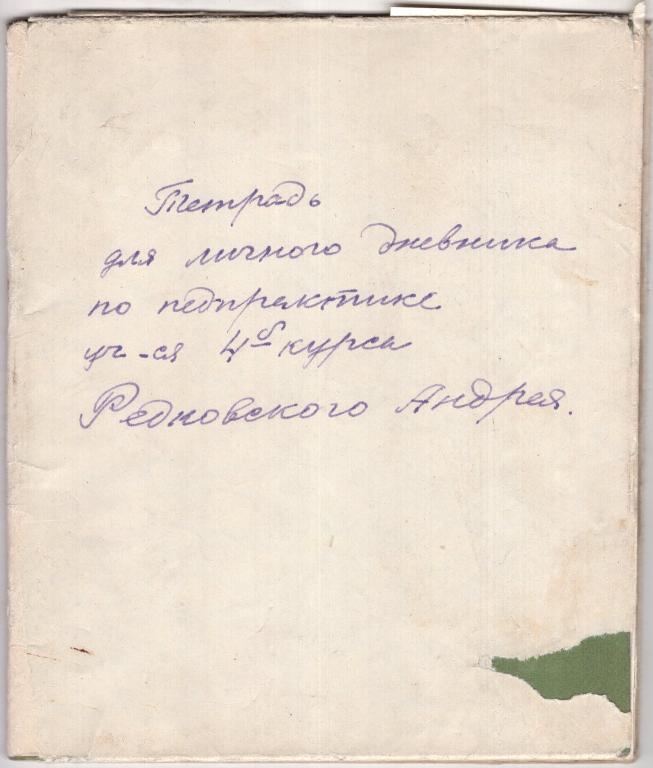 Тетрадь
для личного дневника
по педпрактике
уч-ся 4б курса
Редковского Андрея.